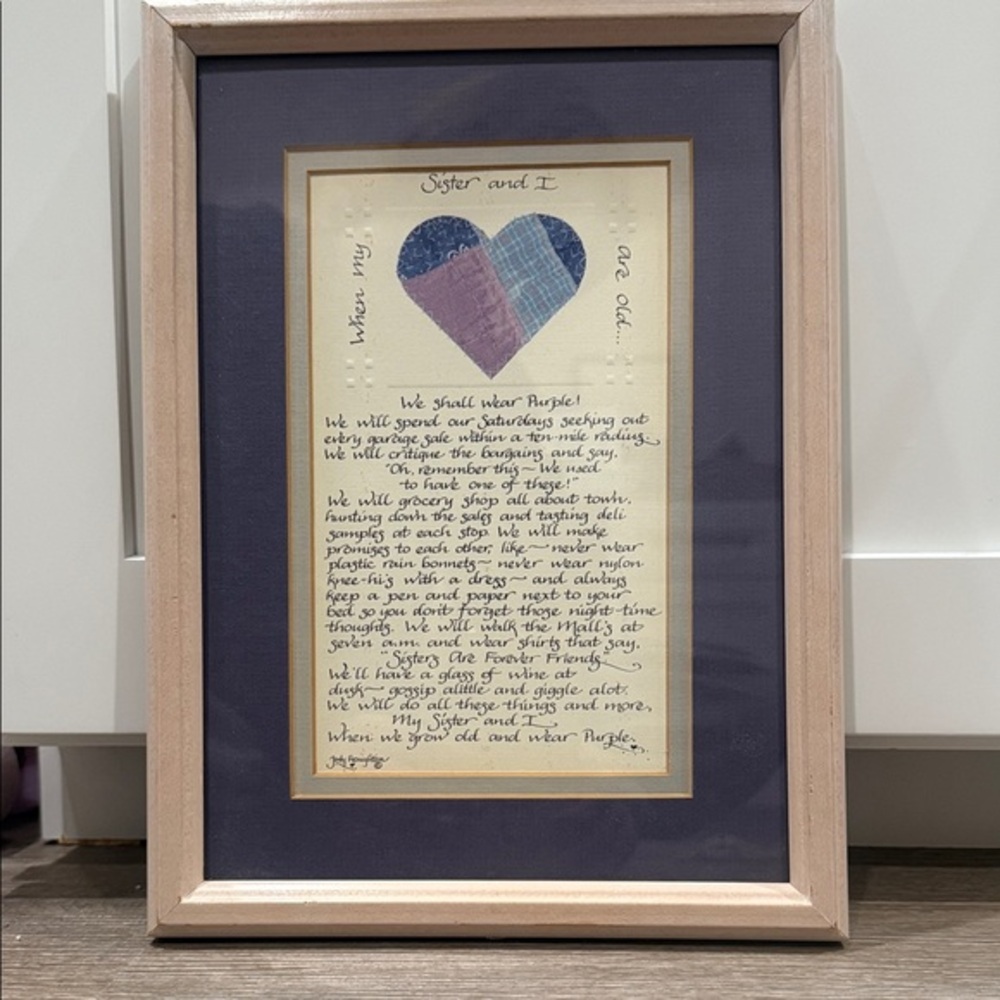 When my
Sister and I
are old...
We shall wear Purple!
We will spend our Saturdays seeking out
every garage sale within a ten-mile radius.
We will critique the bargains and say,
"Oh, remember this~We used
to have one of these!"
We will grocery shop all about town,
hunting down the sales and tasting deli
samples at each stop. We will make
promises to each other, like~never wear
plastic rain bonnets~never wear nylon
knee-hi's with a dress~and always
keep a pen and paper next to your
bed so you don't forget those night-time
thoughts. We will walk the Mall's at
seven a.m. and wear shirts that say,
"Sisters Are Forever Friends"
We'll have a glass of wine at
dusk~gossip alittle and giggle alot.
We will do all these things and more,
My Sister and I,
When we grow old and wear Purple.